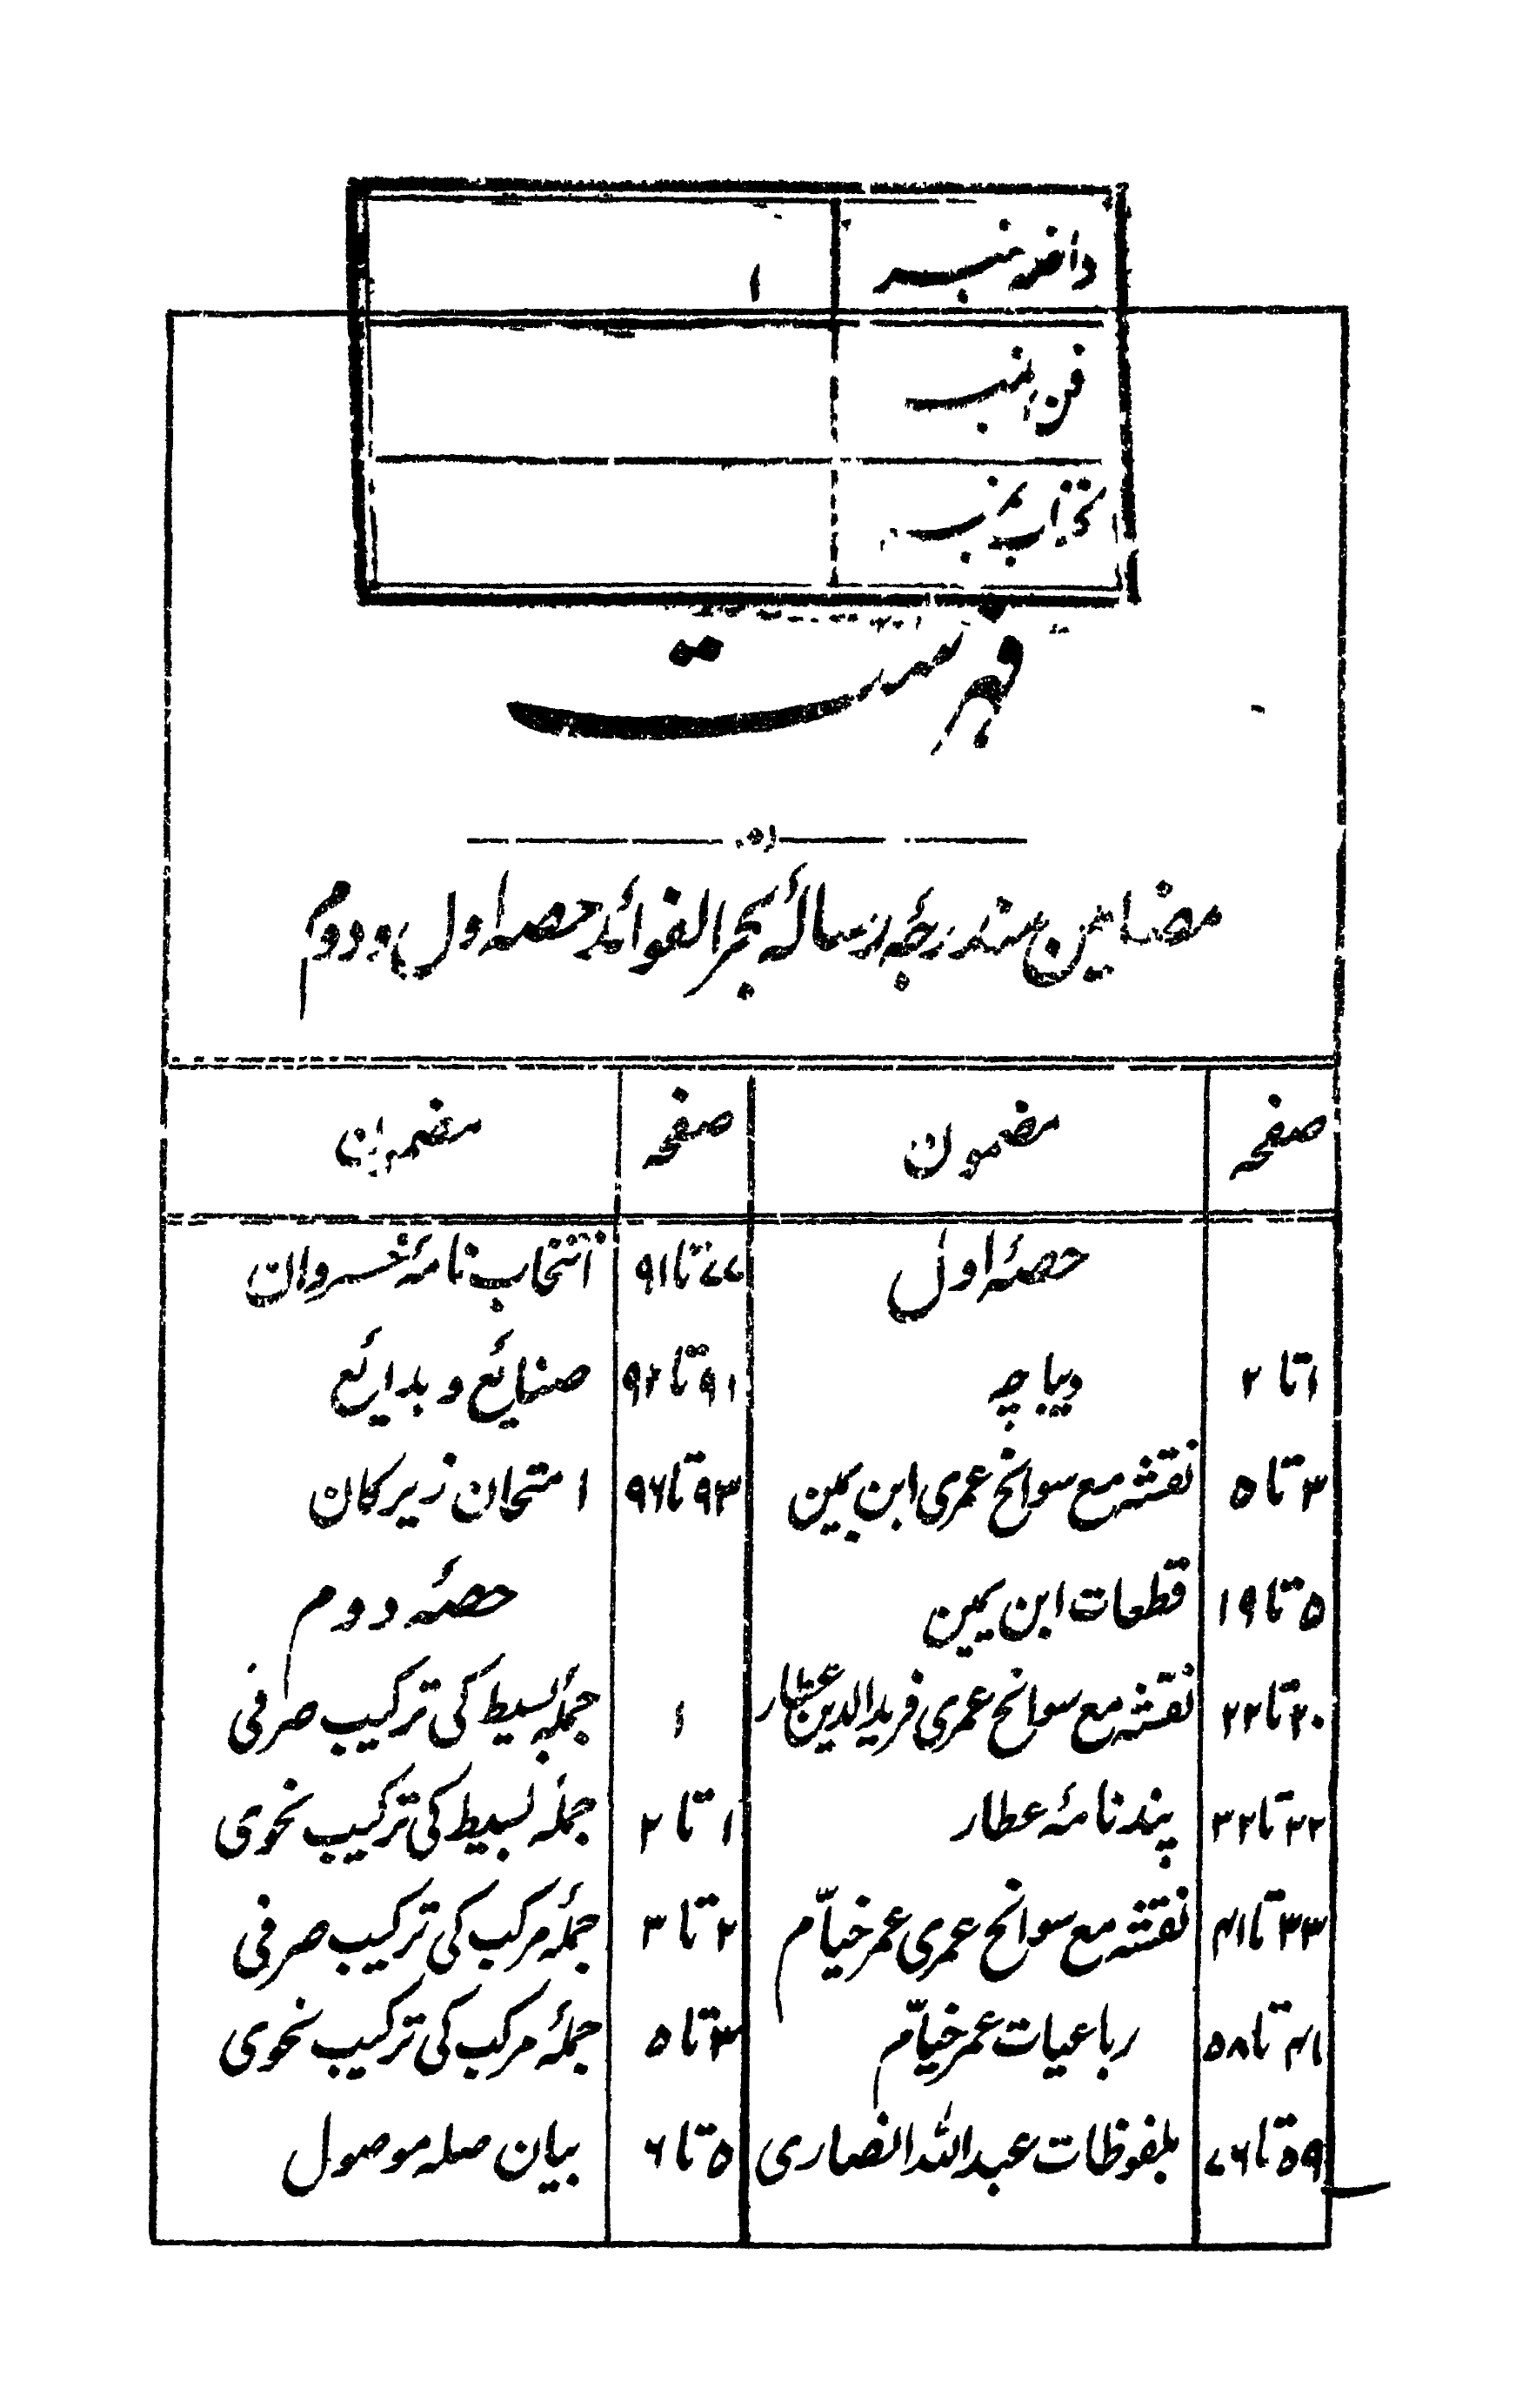 داخلہ نمبر ۱
فن نمبر
کتاب نمبر
فہرست
مضامین مندرجہ رسالۂ بحر الفوائد حصہ اول و دوم
صفحہ مضمون صفحہ مضمون
حصۂ اول ۷۷ تا ۹۱ انتخاب نامۂ خسروان
۱ تا ۲ دیباچہ ۹۱ تا ۹۲ صنایع و بدائع
۳ تا ۵ نقشہ مع سوانح عمری ابن یمین ۹۳ تا ۹۶ امتحان زیرکان
۵ تا ۱۹ قطعات ابن یمین حصۂ دوم
۲۰ تا ۲۲ نقشہ مع سوانح عمری فرید الدین عطار ۱ جملۂ بسیط کی ترکیب صرفی
۲۲ تا ۳۲ پند نامۂ عطار ۱ تا ۲ جملۂ بسیط کی ترکیب نحوی
۳۳ تا ۴۱ نقشہ مع سوانح عمری عمر خیّام ۲ تا ۳ جملۂ مرکب کی ترکیب صرفی
۴۱ تا ۵۸ رباعیات عمر خیّام ۳ تا ۵ جملۂ مرکب کی ترکیب نحوی
۵۹ تا ۷۶ ملفوظات عبد اللہ انصاری ۵ تا ۶ بیان صلہ موصول